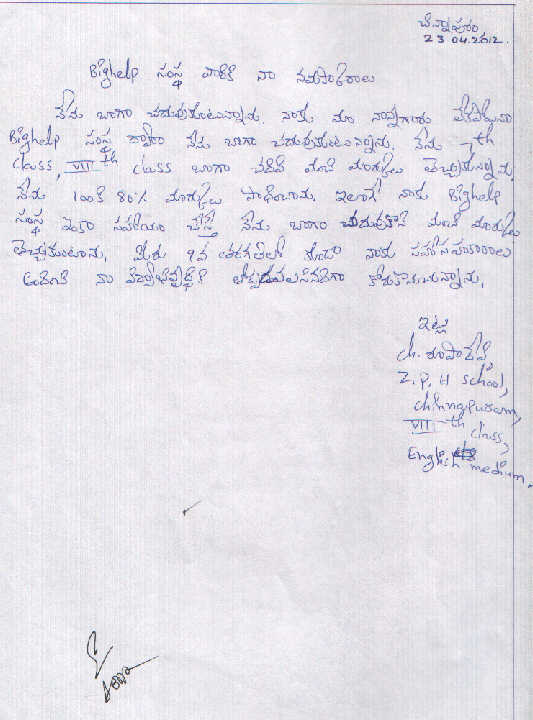 చిన్నాపురం
23.04.2012.
Bighelp సంస్థ వారికి నా నమస్కారాలు
నేను బాగా చదువుకుంటున్నాను. నాకు మా నాన్నగారు
Bighelp సంస్థ ద్వారా నేను బాగా చదువుకుంటున్నాను. నేను th
class, VII th class బాగా చదివి మంచి మార్కులు తెచ్చుకున్నాను.
నేను 100కి 80% మార్కులు సాధించాను. ఇలాగే నాకు Bighelp
సంస్థ ఇంకా సహాయం చేస్తే నేను బాగా చదువుకొని మంచి మార్కులు
తెచ్చుకుంటాను. మీరు 9వ తరగతిలో కూడా నాకు సహాయసహకారాలు
అందించి నా విద్యాభివృద్ధికి తోడ్పడవలసినదిగా కోరుకొనుచున్నాను.
ఇట్లు
ch. రూపాదేవి,
Z.P.H school,
chinnapuram,
VII-th class,
English medium.